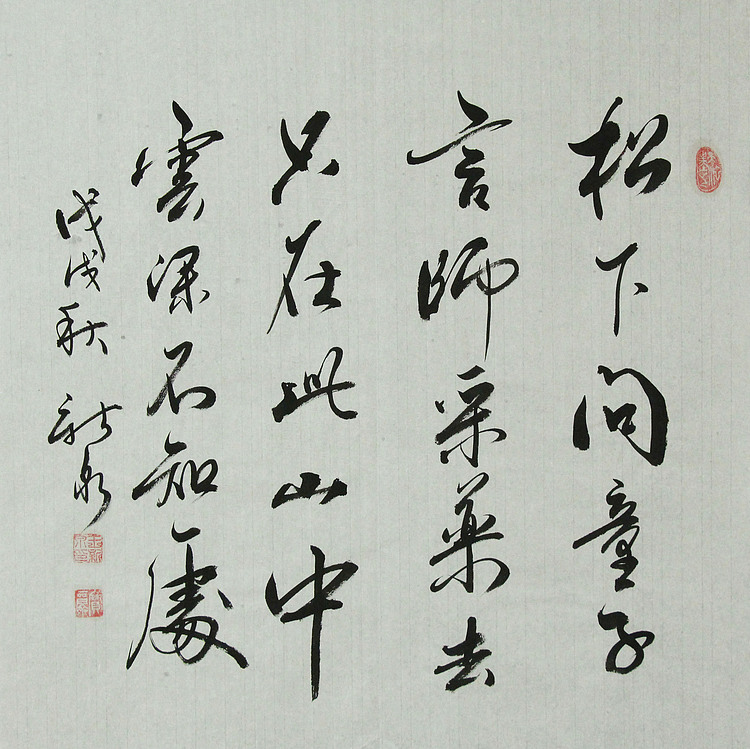 松下问童子
言師采薬去
只在此山中
雲深不知處
戊戌秋 新泉